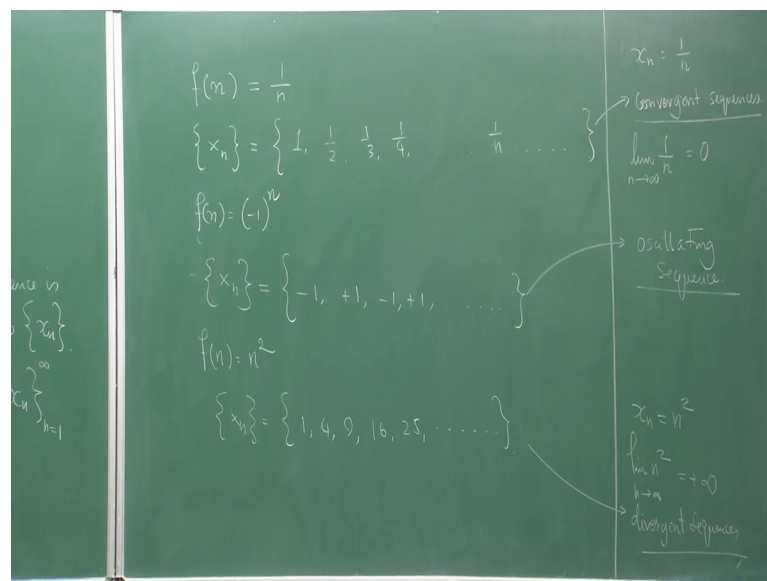 ence is
{xₙ}.
xₙ}^∞_{n=1}
f(n) = 1/n
{xₙ} = {1, 1/2, 1/3, 1/4, .... 1/n .....}
f(n) = (-1)ⁿ
{xₙ} = {-1, +1, -1, +1, .....}
f(n) = n²
{xₙ} = {1, 4, 9, 16, 25, .......}.
xₙ = 1/n
Convergent Sequences
lim_{n→∞} 1/n = 0
oscillating
Sequence.
xₙ = n²
lim_{n→∞} n² = +∞
divergent Sequences